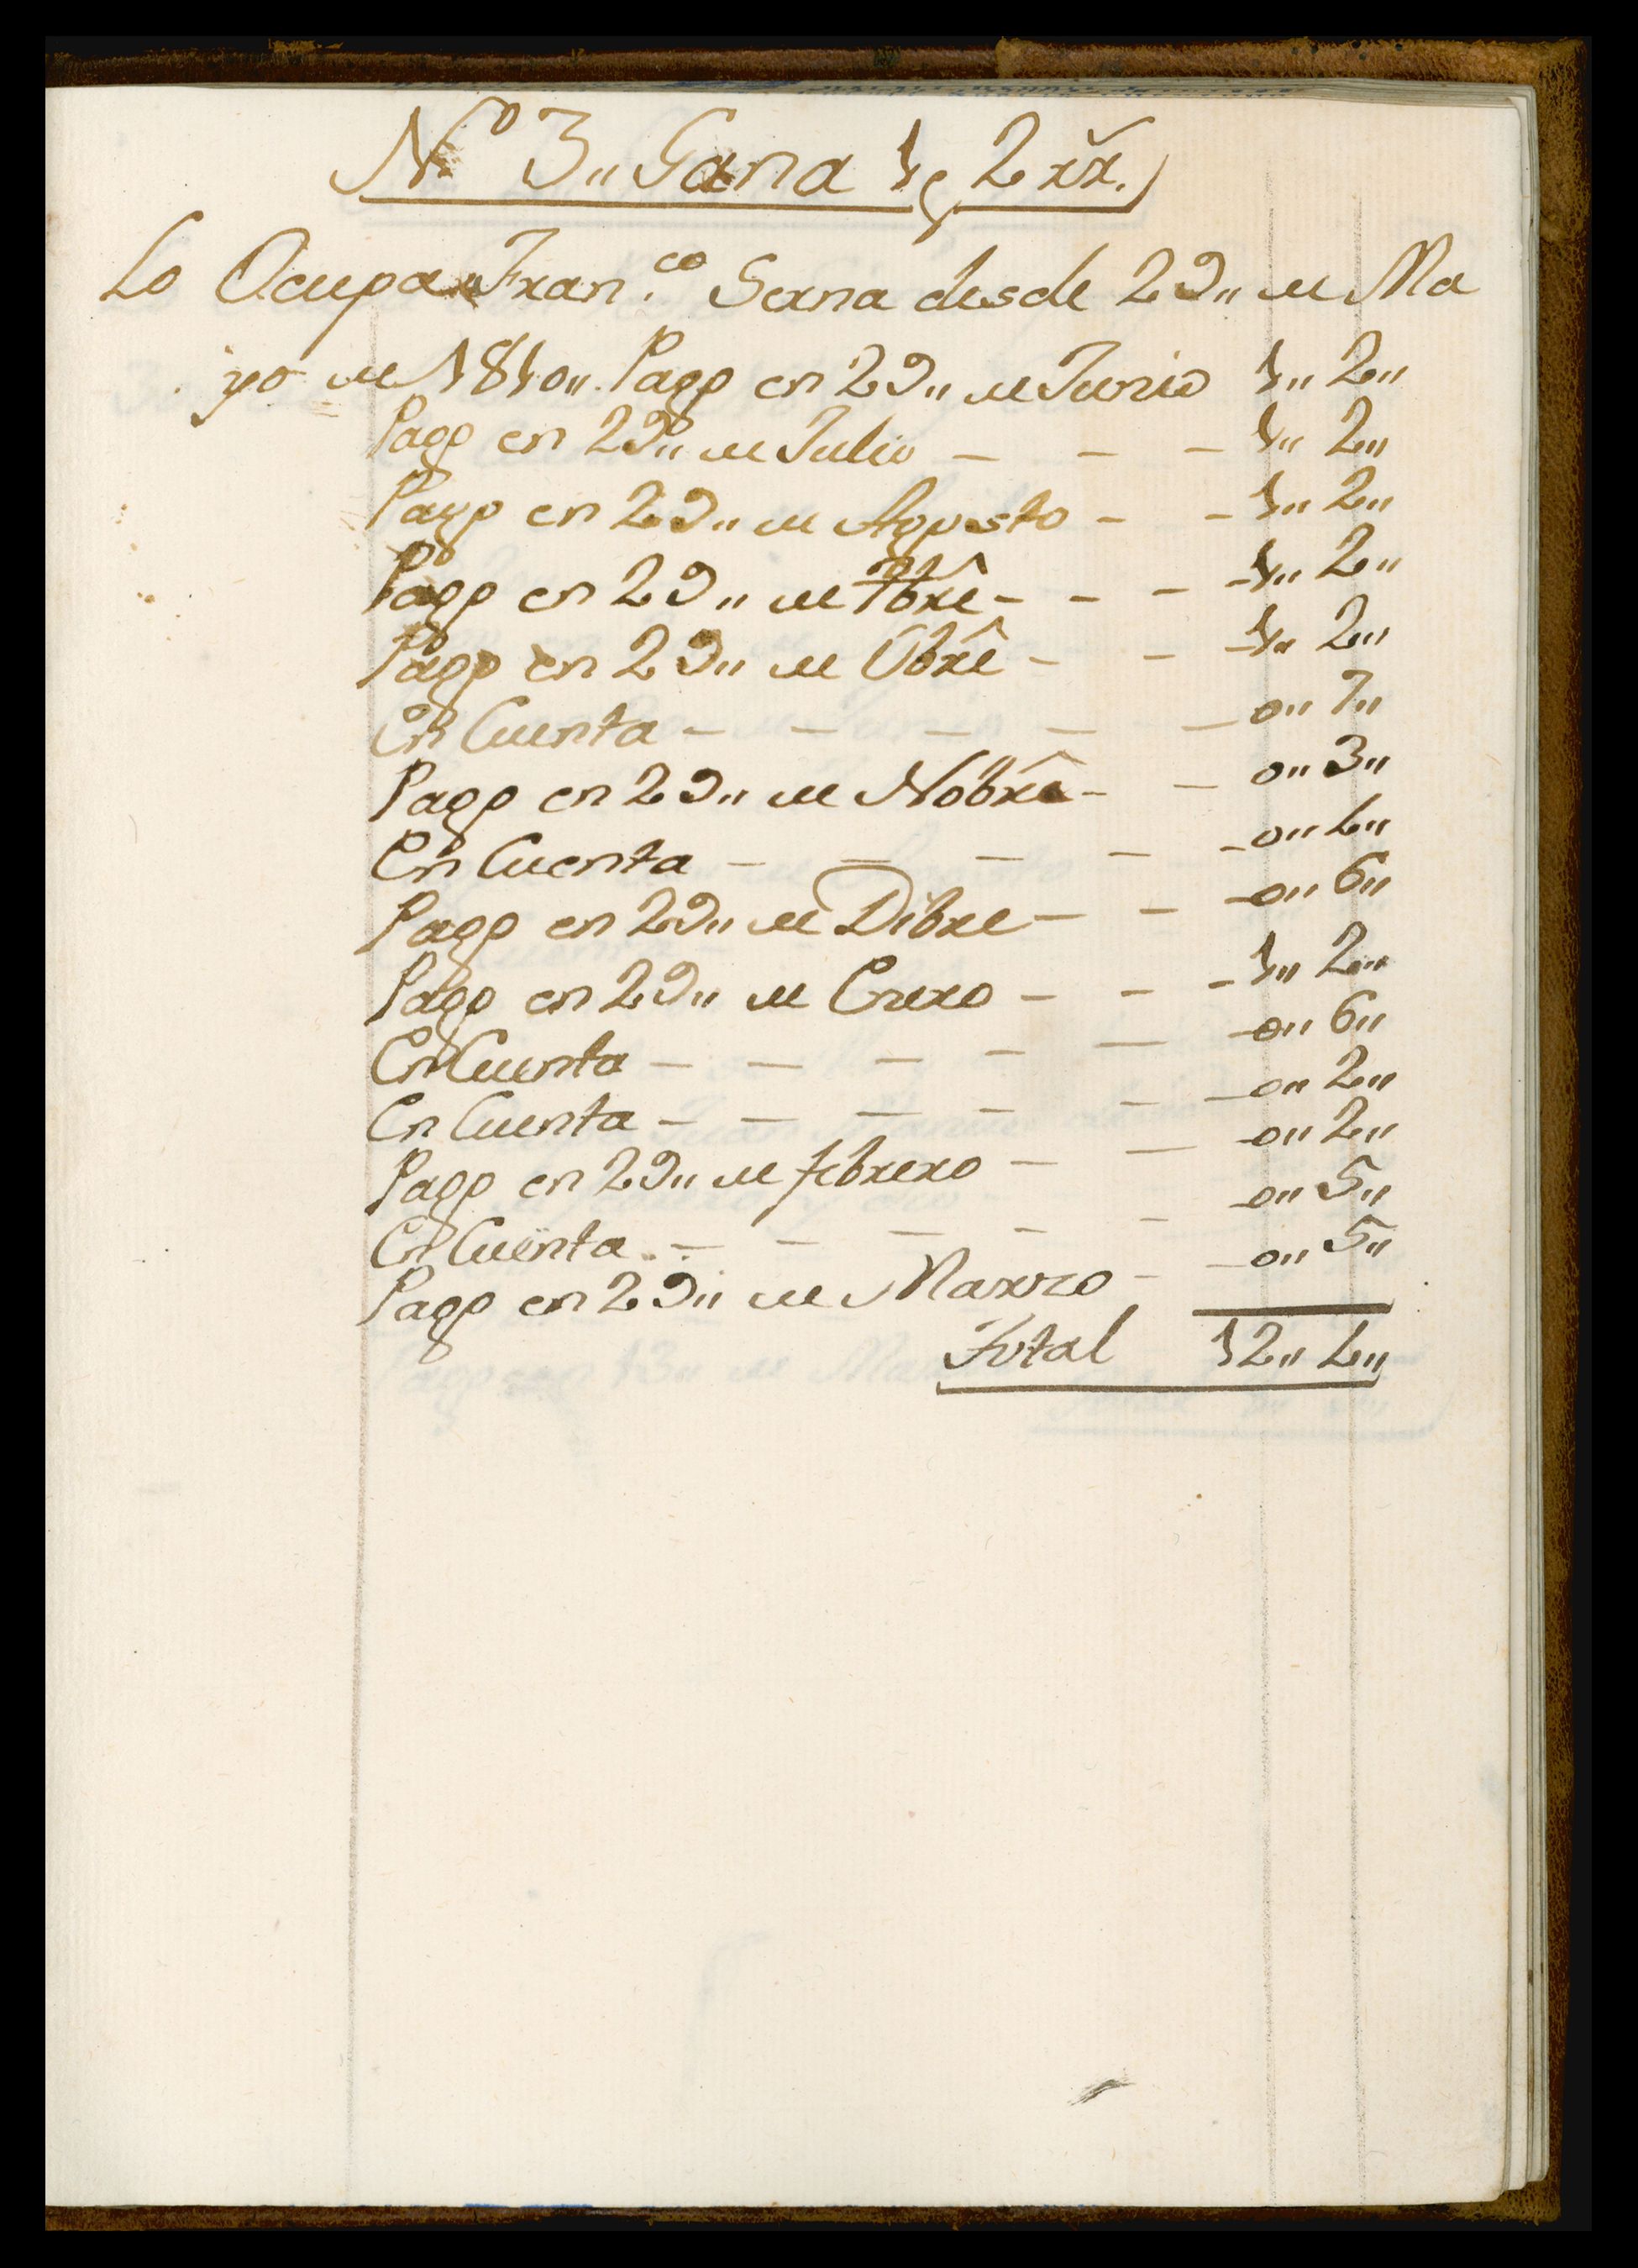 Nº 3,, Gana 1p 2 rr.
Lo Ocupa Fran.co Serna desde 29,, de Ma
yo de 1810,, Pago en 29,, de Junio 1,, 2,,
Pago en 29,, de Julio - - - 1,, 2,,
Pago en 29,, de Agosto - - 1,, 2,,
Pago en 29,, de 7bre - - - 1,, 2,,
Pago en 29,, de Obre - - - 1,, 2,,
En Cuenta - - - - - 0,, 7,,
Pago en 29,, de Nobre - - 0,, 3,,
En Cuenta - - - - - 0,, 4,,
Pago en 29,, de Dibre - - - 0,, 6,,
Pago en 29,, de Enero - - - 1,, 2,,
En Cuenta - - - - - - 0,, 6,,
En Cuenta - - - - - - 0,, 2,,
Pago en 29,, de febrero - - - 0,, 2,,
En Cuenta - - - - - - 0,, 5,,
Pago en 29,, de Marzo - - 0,, 5,,
Total 12,, 4,,